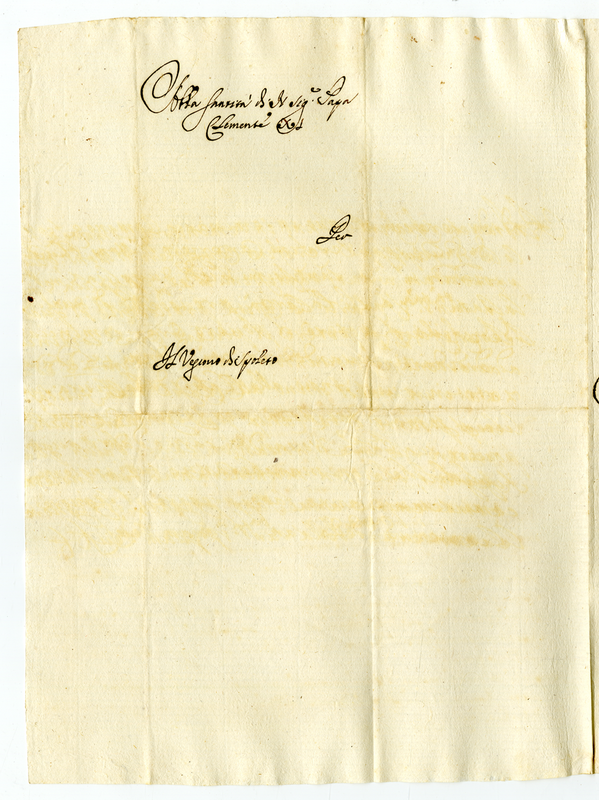 Alla Santità di N. Sig.re Papa
Clemente XI
Per
Il Vescovo di Spoleto